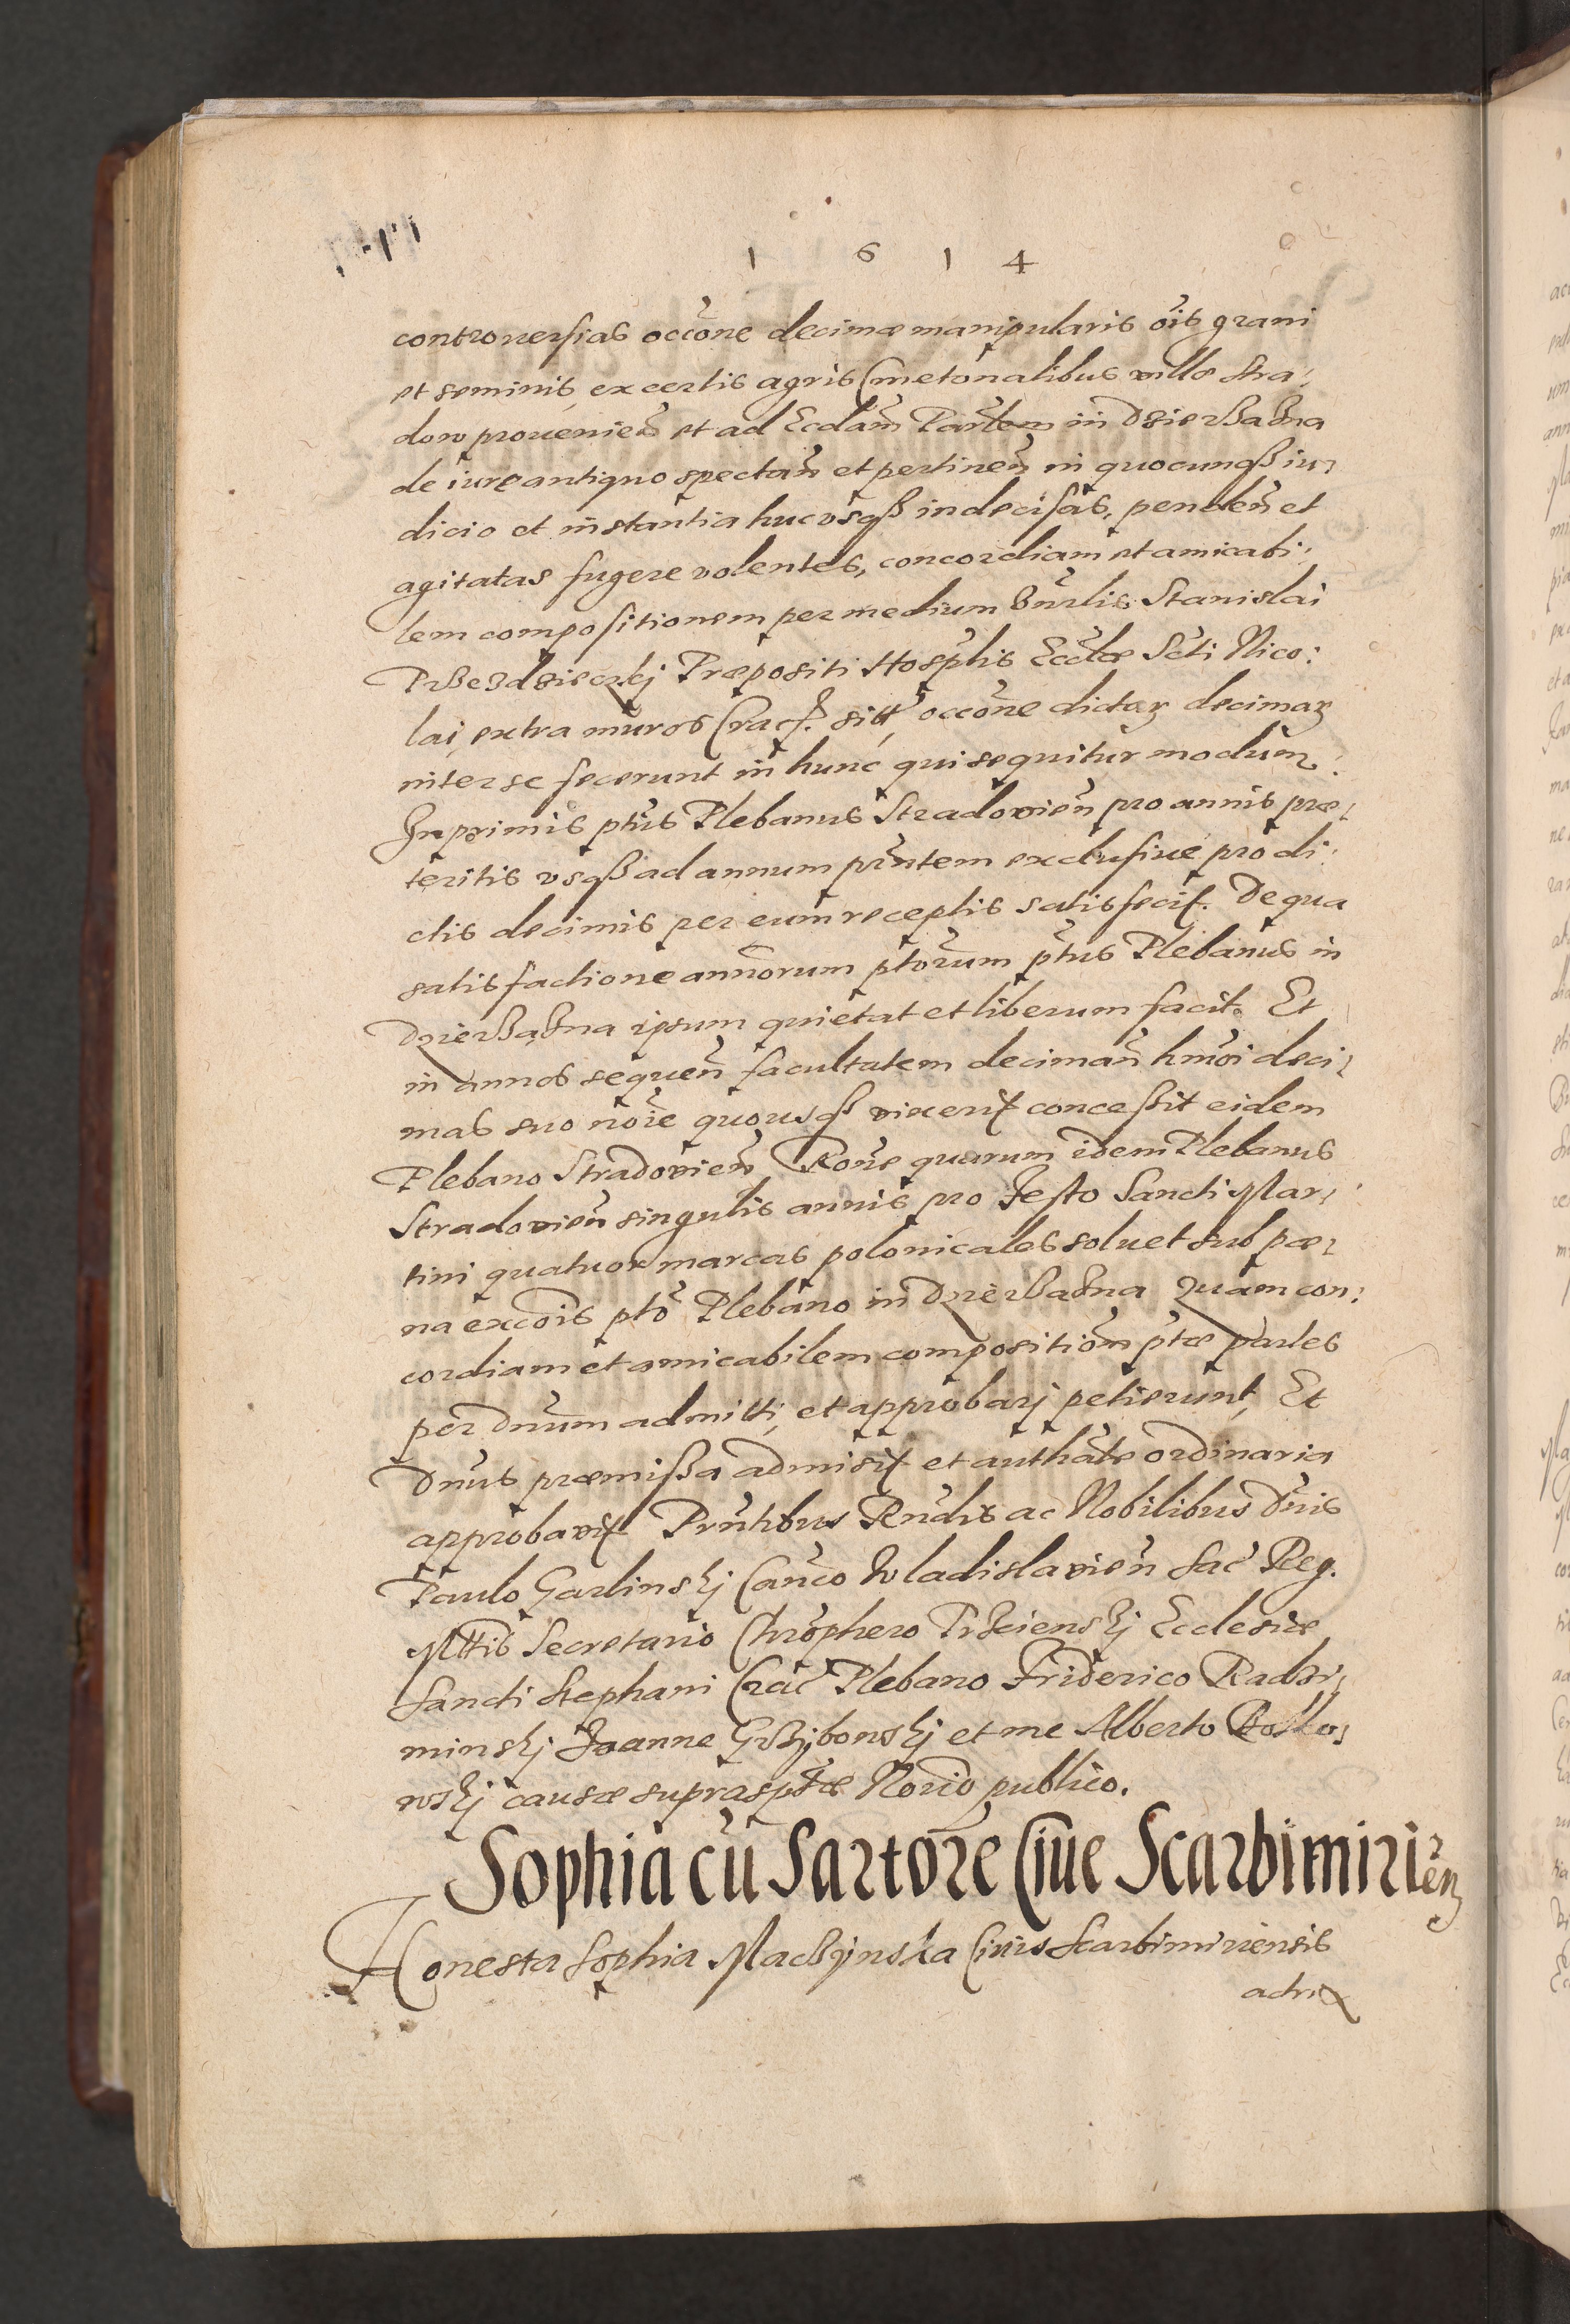 1 6 1 4
controuersias occõne decimæ manipularis oĩs grani
et seminis, ex certis agris Cmetonalibus villæ Stra¬
dow prouenieñ et ad Eccłam Parłem in Dzierzązna
de iure antiquo spectañ et pertineñ in quocunqß iu¬
dicio et instantia hucvsqß indecisas, pendeñ et
agitatas fugere volentes, concordiam et amicabi¬
lem compositionem per medium Vnrlis Stanislai
Præpositi Hosplis Ecclæ Scti Nico:
lai extra muros Crac. sitt, occõne dictarꝫ decimarꝫ
inter se fecerunt in hunc qui sequitur modum.
Inprimis ptus Plebanus Stradowieñ pro annis præ¬
teritis vsqß ad annum pñtem exclusiue pro di¬
ctis decimis per eum receptis satisfecit. De qua
satisfactione annorum ptorum ptus Plebanus in
Dzierzązna ipsum quietat et liberum facit. Et
in annos sequeñ facultatem decimañ hmoi deci¬
mas suo noĩe quousqß vixerit concessit eidem
Plebano Stradowieñ Rone quarum idem Plebanus
Stradowieñ singulis annis pro Festo Sancti Mar¬
tini quatuor marcas polonicales soluet sub pæ¬
na excõis pto Plebano in Dzierzązna Quam con:
cordiam et amicabilem compositiõm ptæ partes
per Dnum admitti, et approbarj petierunt, Et
Dnus præmissa admisit et authãte ordinaria
approbavit Pñtibus Rndis ac Nobilibus Dnis
Paulo Garlinskj Canco Wladislavieñ Sac Reg.
Mttis Secretario Chrophero Trzcienskj Ecclesiæ
Sancti Stephani Crac Plebano Friderico Radzi¬
minskj Joanne Grzybowskj et me Alberto Rosko¬
wskj causæ suprasptæ Norio publico.
Sophia cũ Sartore Ciue Scarbimirieñ
Honesta Sophia Maczynska Ciuis Scarbimiriensis
actrix